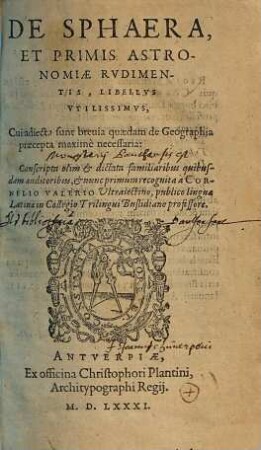 DE SPHAERA,
ET PRIMIS ASTRO-
NOMIÆ RVDIMEN-
TIS, LIBELLVS
VTILISSIMVS,
Cui adiecta sunt breuia quædam de Geographia
præcepta maximè necessaria:
Conscripta olim & dictata familiaribus quibus-
dam auditoribus, & nunc primum recognita à COR-
NELIO VALERIO Vltraiectino, publico linguæ
Latinæ in Collegio Trilingui Buslidiano professore.
ANTVERPIÆ,
Ex officina Christophori Plantini,
Architypographi Regij.
M. D. LXXXI.